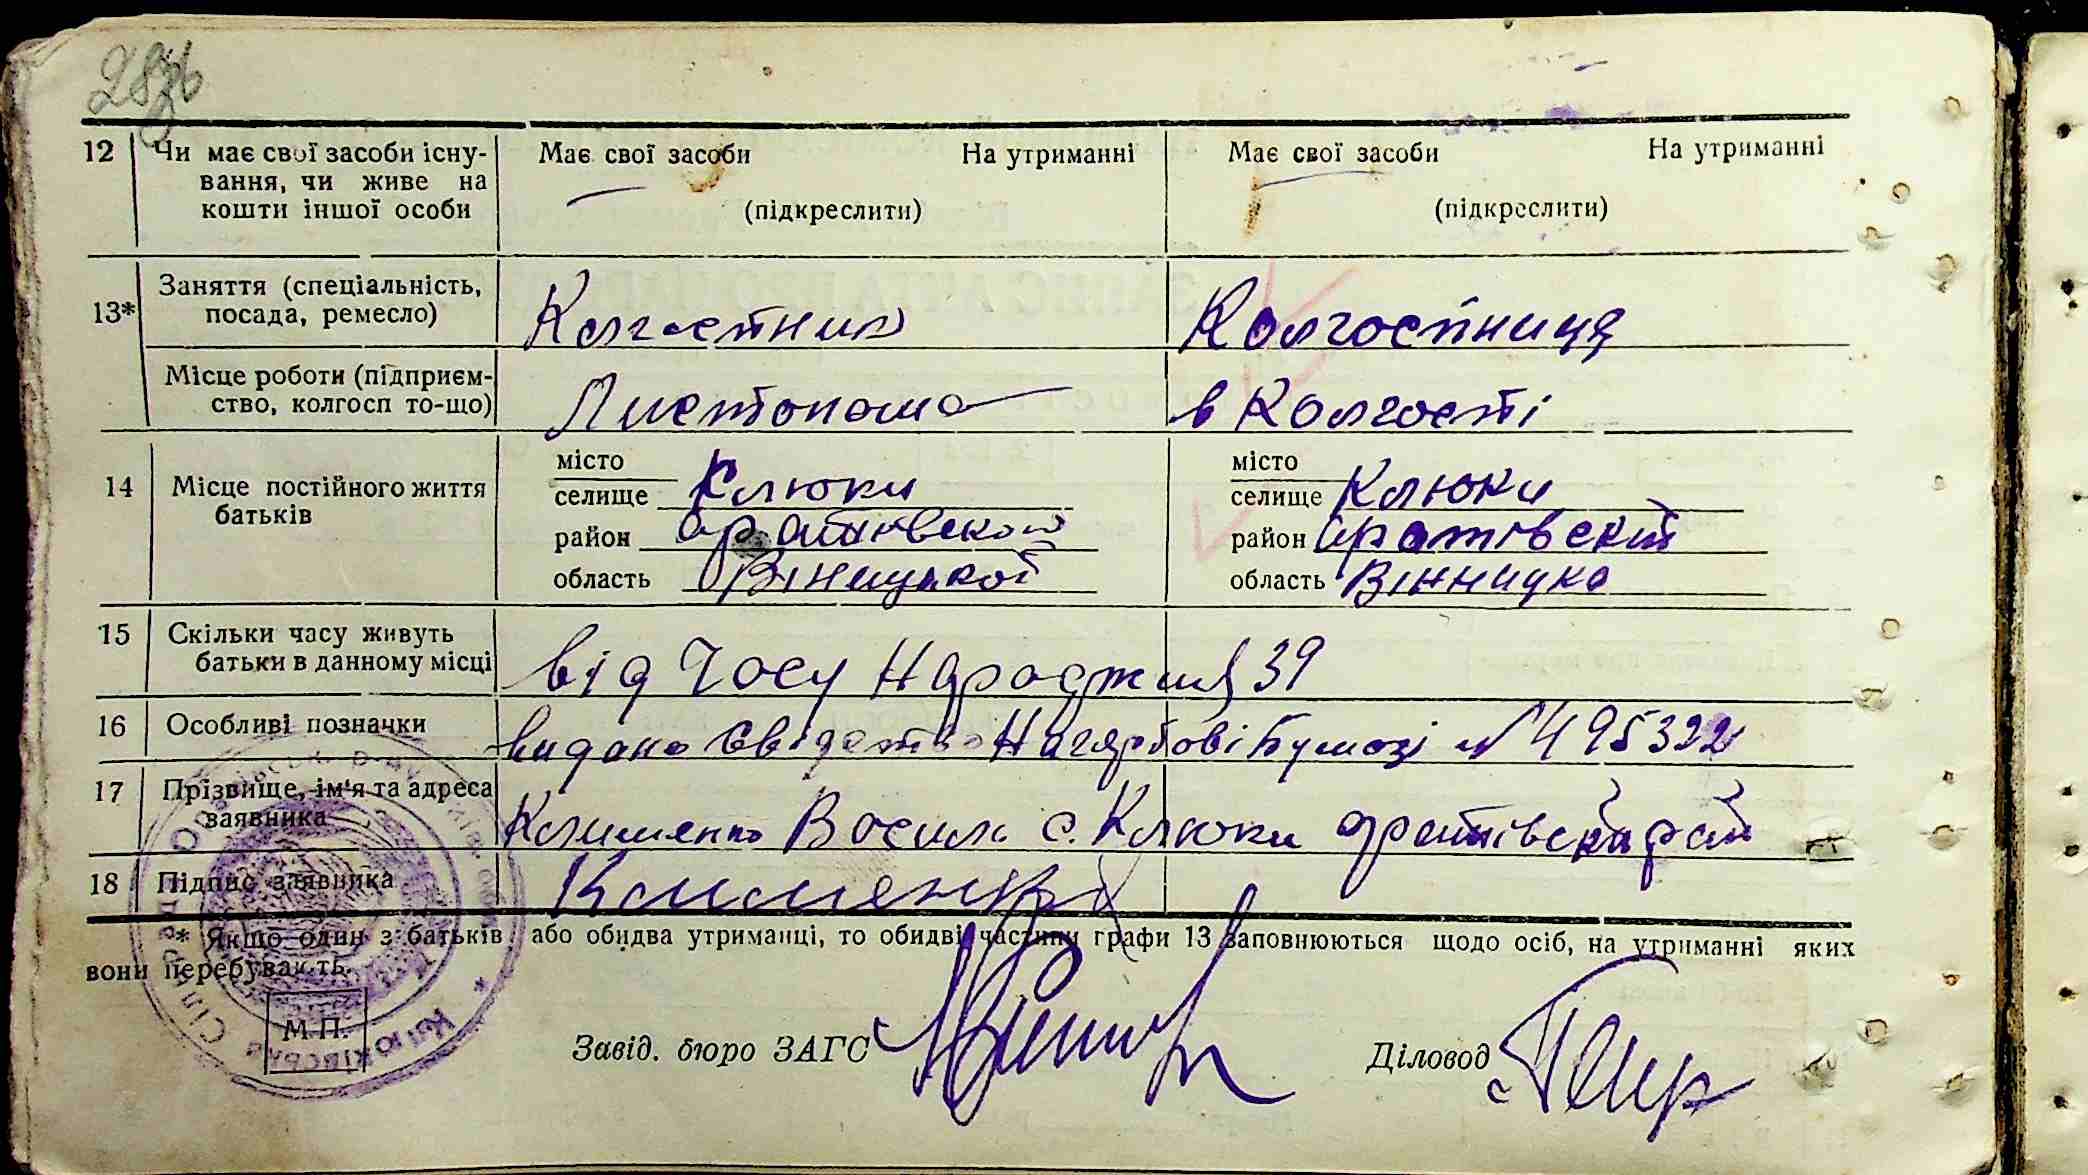 12 Чи має свої засоби існу- Має свої засоби На утриманні Має свої засоби На утриманні
вання, чи живе на
кошти іншої особи (підкреслити) (підкреслити)
13* Заняття (спеціальність,
посада, ремесло) Колгостник Колгостниця
Місце роботи (підприєм-
ство, колгосп то-що) Листоноша в Колгості
місто місто
14 Місце постійного життя селище Клюки селище Клюки
батьків
район район
область Вінницкої область Вінницка
15 Скільки часу живуть
батьки в данному місці від Часу 39
16 Особливі позначки видано Свідотво На Бумазі № 495322
17 Прізвище, ім'я та адреса
заявника Клименко Восиль с. Клюки
18 Підпис заявника Клименко
* Якщо один з батьків, або обидва утриманці, то обидві частини графи 13 заповнюються щодо осіб, на утриманні яких
вони перебувають.
М.П.
Завід. бюро ЗАГС Діловод